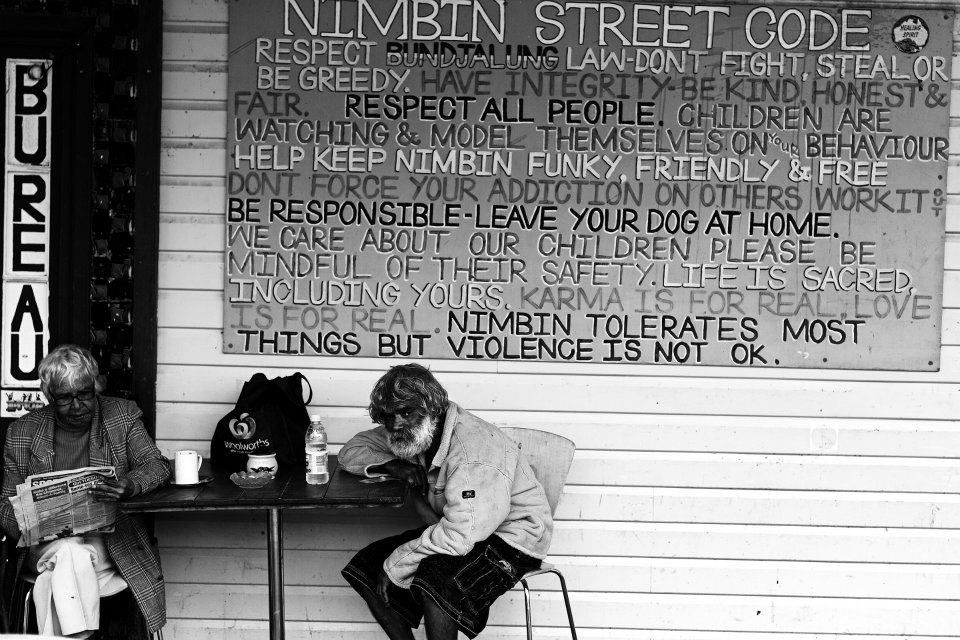 NIMBIN STREET CODE
HEALING
SPIRIT
RESPECT BUNDJALUNG LAW-DONT FIGHT, STEAL OR
BE GREEDY. HAVE INTEGRITY-BE KIND, HONEST &
FAIR. RESPECT ALL PEOPLE. CHILDREN ARE
WATCHING & MODEL THEMSELVES ON YOUR BEHAVIOUR
HELP KEEP NIMBIN FUNKY, FRIENDLY & FREE
DONT FORCE YOUR ADDICTION ON OTHERS WORK IT OUT
BE RESPONSIBLE-LEAVE YOUR DOG AT HOME.
WE CARE ABOUT OUR CHILDREN PLEASE BE
MINDFUL OF THEIR SAFETY. LIFE IS SACRED,
INCLUDING YOURS. KARMA IS FOR REAL, LOVE
IS FOR REAL. NIMBIN TOLERATES MOST
THINGS BUT VIOLENCE IS NOT OK.
BUREAU
woolworths